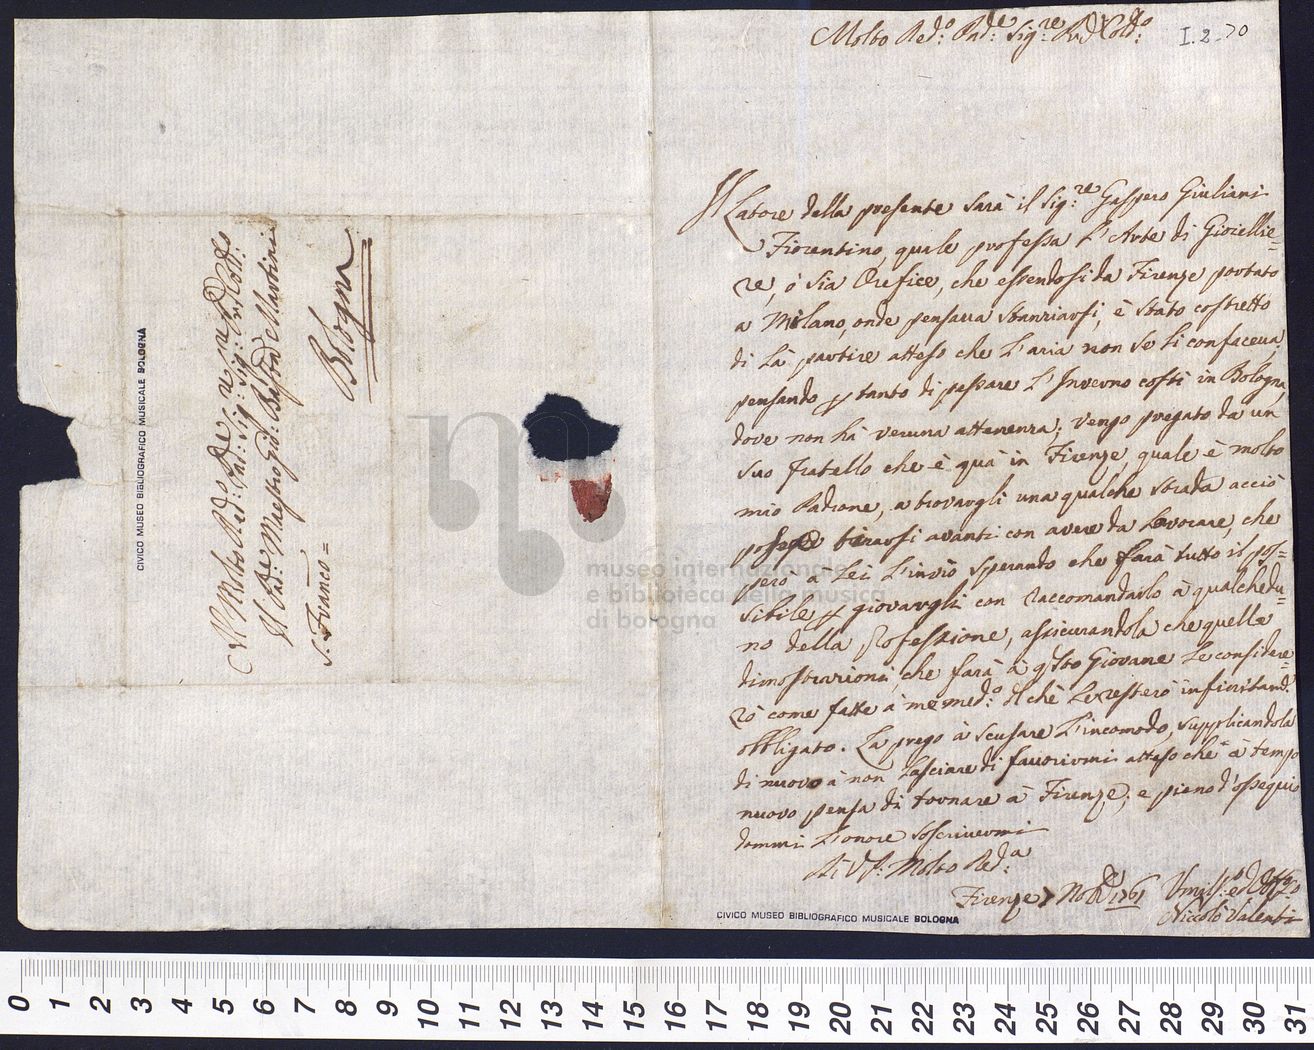 Al Molto Red:do Pad:re Sig:re Sig:re Pad:n Coll:mo
Il Pad:re Maestro Gio: Batt:a Martini
S. Franc:co =
Bologna
CIVICO MUSEO BIBLIOGRAFICO MUSICALE BOLOGNA
Molto Red:o Pad:e Sig:re Pad: Col:mo
I.2.70
Il Latore della presente sarà il Sig:re Gaspero Giuliani
Fiorentino, quale professa l'Arte di Gioiellie=
re, ò sia Orefice, che essendosi da Firenze portato
a Milano, onde pensava stanziarsi, è stato costretto
di là partire atteso che l'aria non se li confaceva,
pensando p tanto di passare l'Inverno costì in Bologna,
dove non hà veruna attenenza; vengo pregato da un
suo fratello che è quà in Firenze, quale è molto
mio Padrone, a trovargli una qualche strada acciò
possa tirarsi avanti con avere da lavorare, che
però a Lei l'invio sperando che farà tutto il pos=
sibile p giovargli con raccomandarlo à qualchedu=
no della Professione, assicurandola che quelle
dimostrazioni, che farà à q:sto Giovane le considere=
rò come fatte à me med:o il chè le resterò infinitam:e
obbligato. La prego à scusare l'incomodo, supplicandola
di nuovo à non lasciare di favorirmi atteso che à tempo
nuovo pensa di tornare à Firenze; e pieno d'ossequi
dommi l'onore soscrivermi
Di V.S: Molto Red:a
Firenze 7 Nov:e 1761
Umiliss:o e
Niccolò Valenti
CIVICO MUSEO BIBLIOGRAFICO MUSICALE BOLOGNA
museo internazionale
e biblioteca della musica
di bologna
0 1 2 3 4 5 6 7 8 9 10 11 12 13 14 15 16 17 18 19 20 21 22 23 24 25 26 27 28 29 30 31